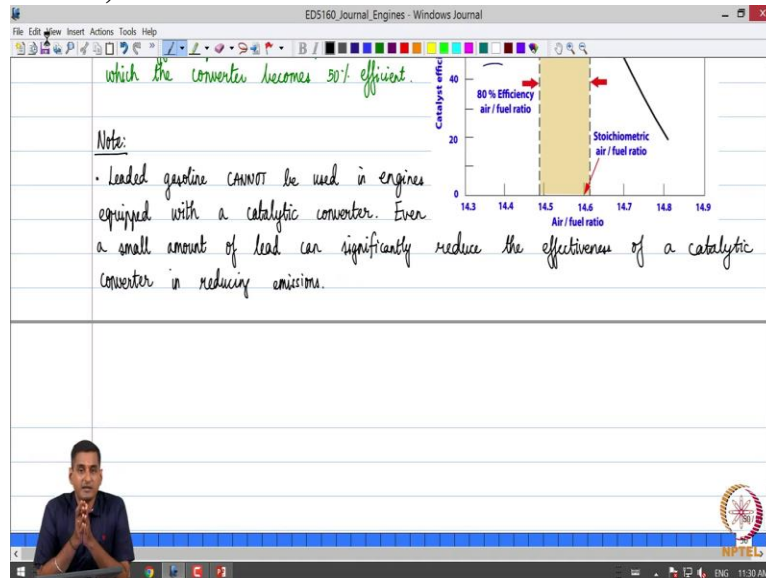 )
ED5160_Journal_Engines - Windows Journal
File Edit View Insert Actions Tools Help
which the converter becomes 50% efficient.
Note:
· Leaded gasoline CANNOT be used in engines
equipped with a catalytic converter. Even
a small amount of lead can significantly reduce the effectiveness of a catalytic
converter in reducing emissions.
Catalyst effici
40
20
0
80 % Efficiency
air / fuel ratio
Stoichiometric
air / fuel ratio
14.3 14.4 14.5 14.6 14.7 14.8 14.9
Air / fuel ratio
NPTEL
ENG 11:30 AM